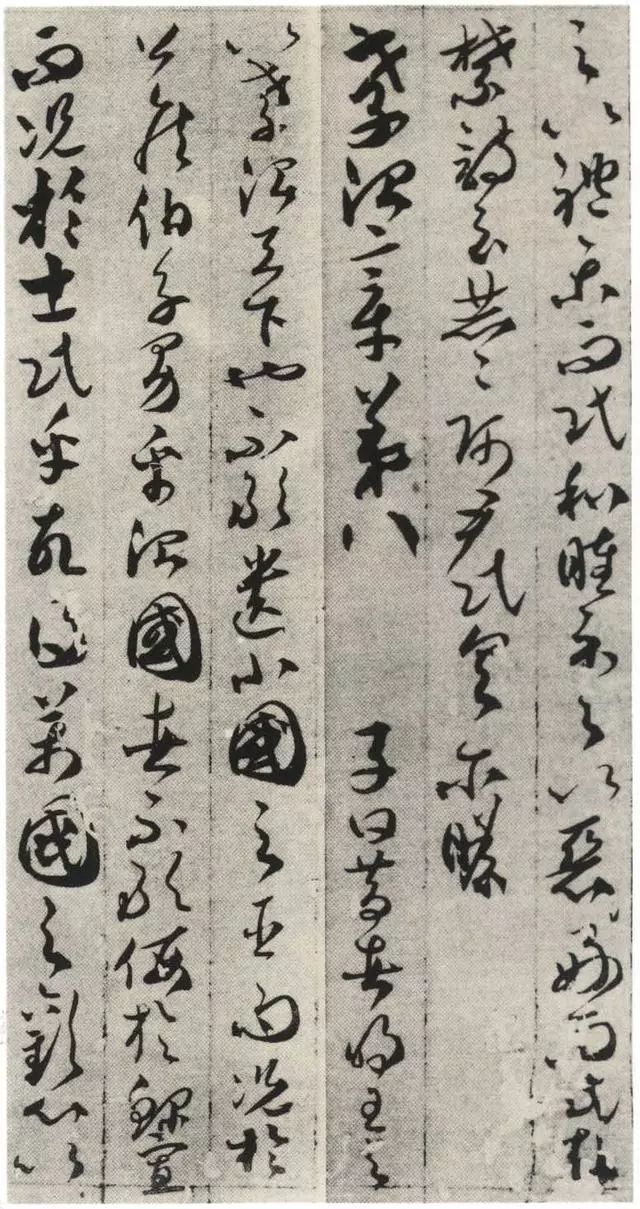 之以禮樂而民和睦示之以惡好而民知
禁詩云赫〻師尹民具爾瞻
孝治章第八　子曰昔者明王之
以孝治天下也不敢遺小國之臣而況於
公侯伯子男乎治國者不敢侮於鰥寡
而況於士民乎故得萬國之歡心以